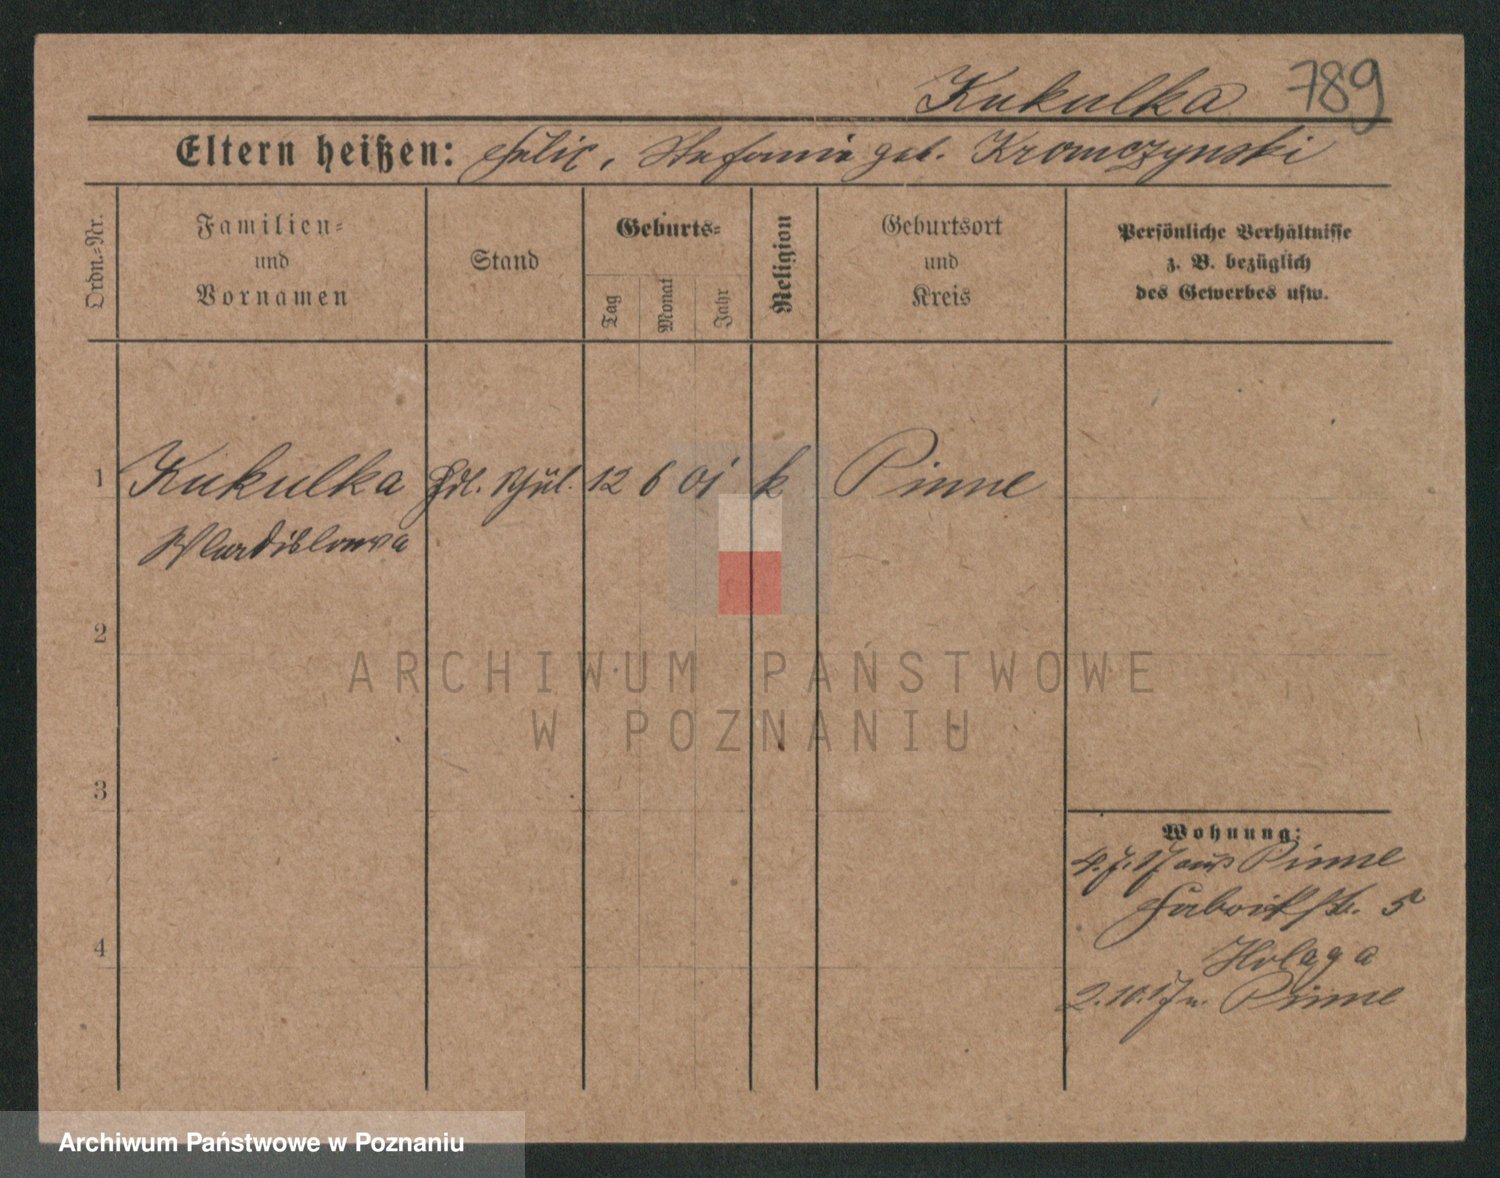 Kukulka 789
Eltern heißen: Felix, Stefania geb. Kromczynski
Ordn.-Nr.
Familien-
und
Vornamen
Stand
Geburts-
Tag
Monat
Jahr
Religion
Geburtsort
und
Kreis
Persönliche Verhältnisse
z. B. bezüglich
des Gewerbes usw.
1 Kukulka 12 6 01 k Pinne
Wladislowa
2
ARCHIWUM PAŃSTWOWE
W POZNANIU
3
Wohnung:
4. 7. 17 aus Pinne
Fabrikstr. 5
4
2. 10. 17 n. Pinne
Archiwum Państwowe w Poznaniu